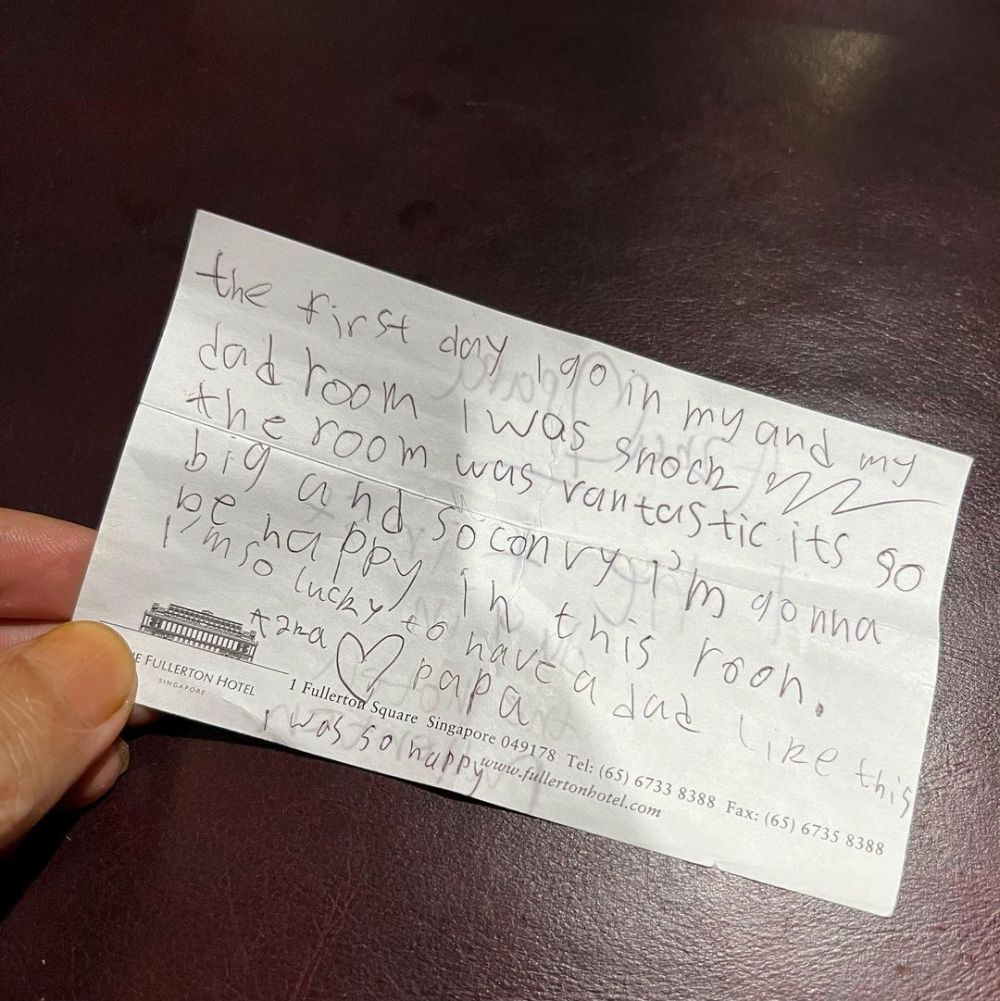 the first day I go in my and my
dad room I was snock
the room was rantastic its so
big and so convy I'm gonna
be happy in this rooh.
I'm so lucky to have a dad like this
Azra ♡ papa
THE FULLERTON HOTEL
SINGAPORE
1 Fullerton Square Singapore 049178 Tel: (65) 6733 8388 Fax: (65) 6735 8388
www.fullertonhotel.com
I was so happy